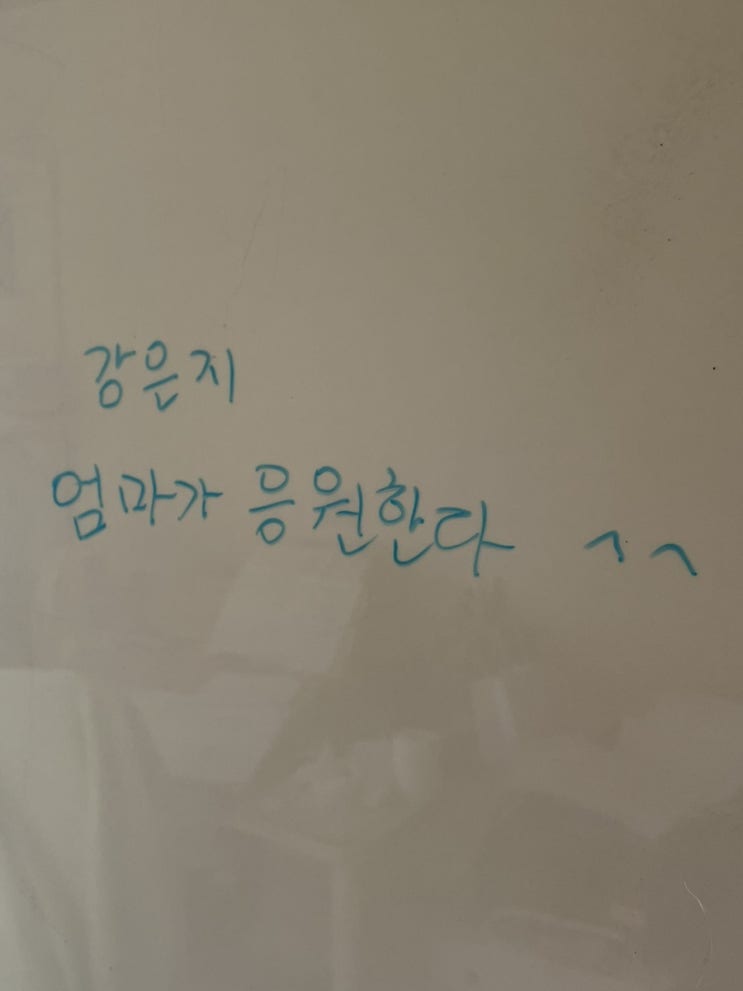 강은지
엄마가 응원한다 ^^